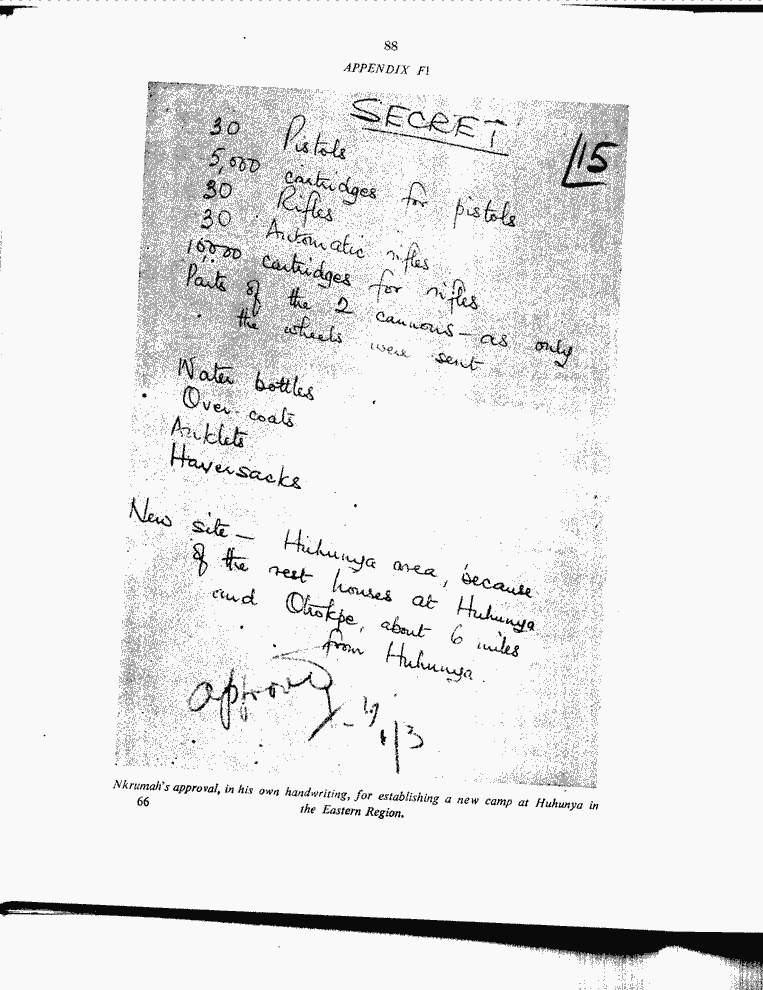 88
APPENDIX F1
SECRET
15
30 Pistols
5,000 cartridges for pistols
30 Rifles
30 Automatic rifles
10,000 cartridges for rifles
Parts of the 2 cannons – as only
the wheels were sent
Water bottles
Over coats
Anklets
Haversacks
New site – Huhunya area, because
of the rest houses at Huhunya
and Otrokpe, about 6 miles
from Huhunya.
approved
Nkrumah's approval, in his own handwriting, for establishing a new camp at Huhunya in
66
the Eastern Region.